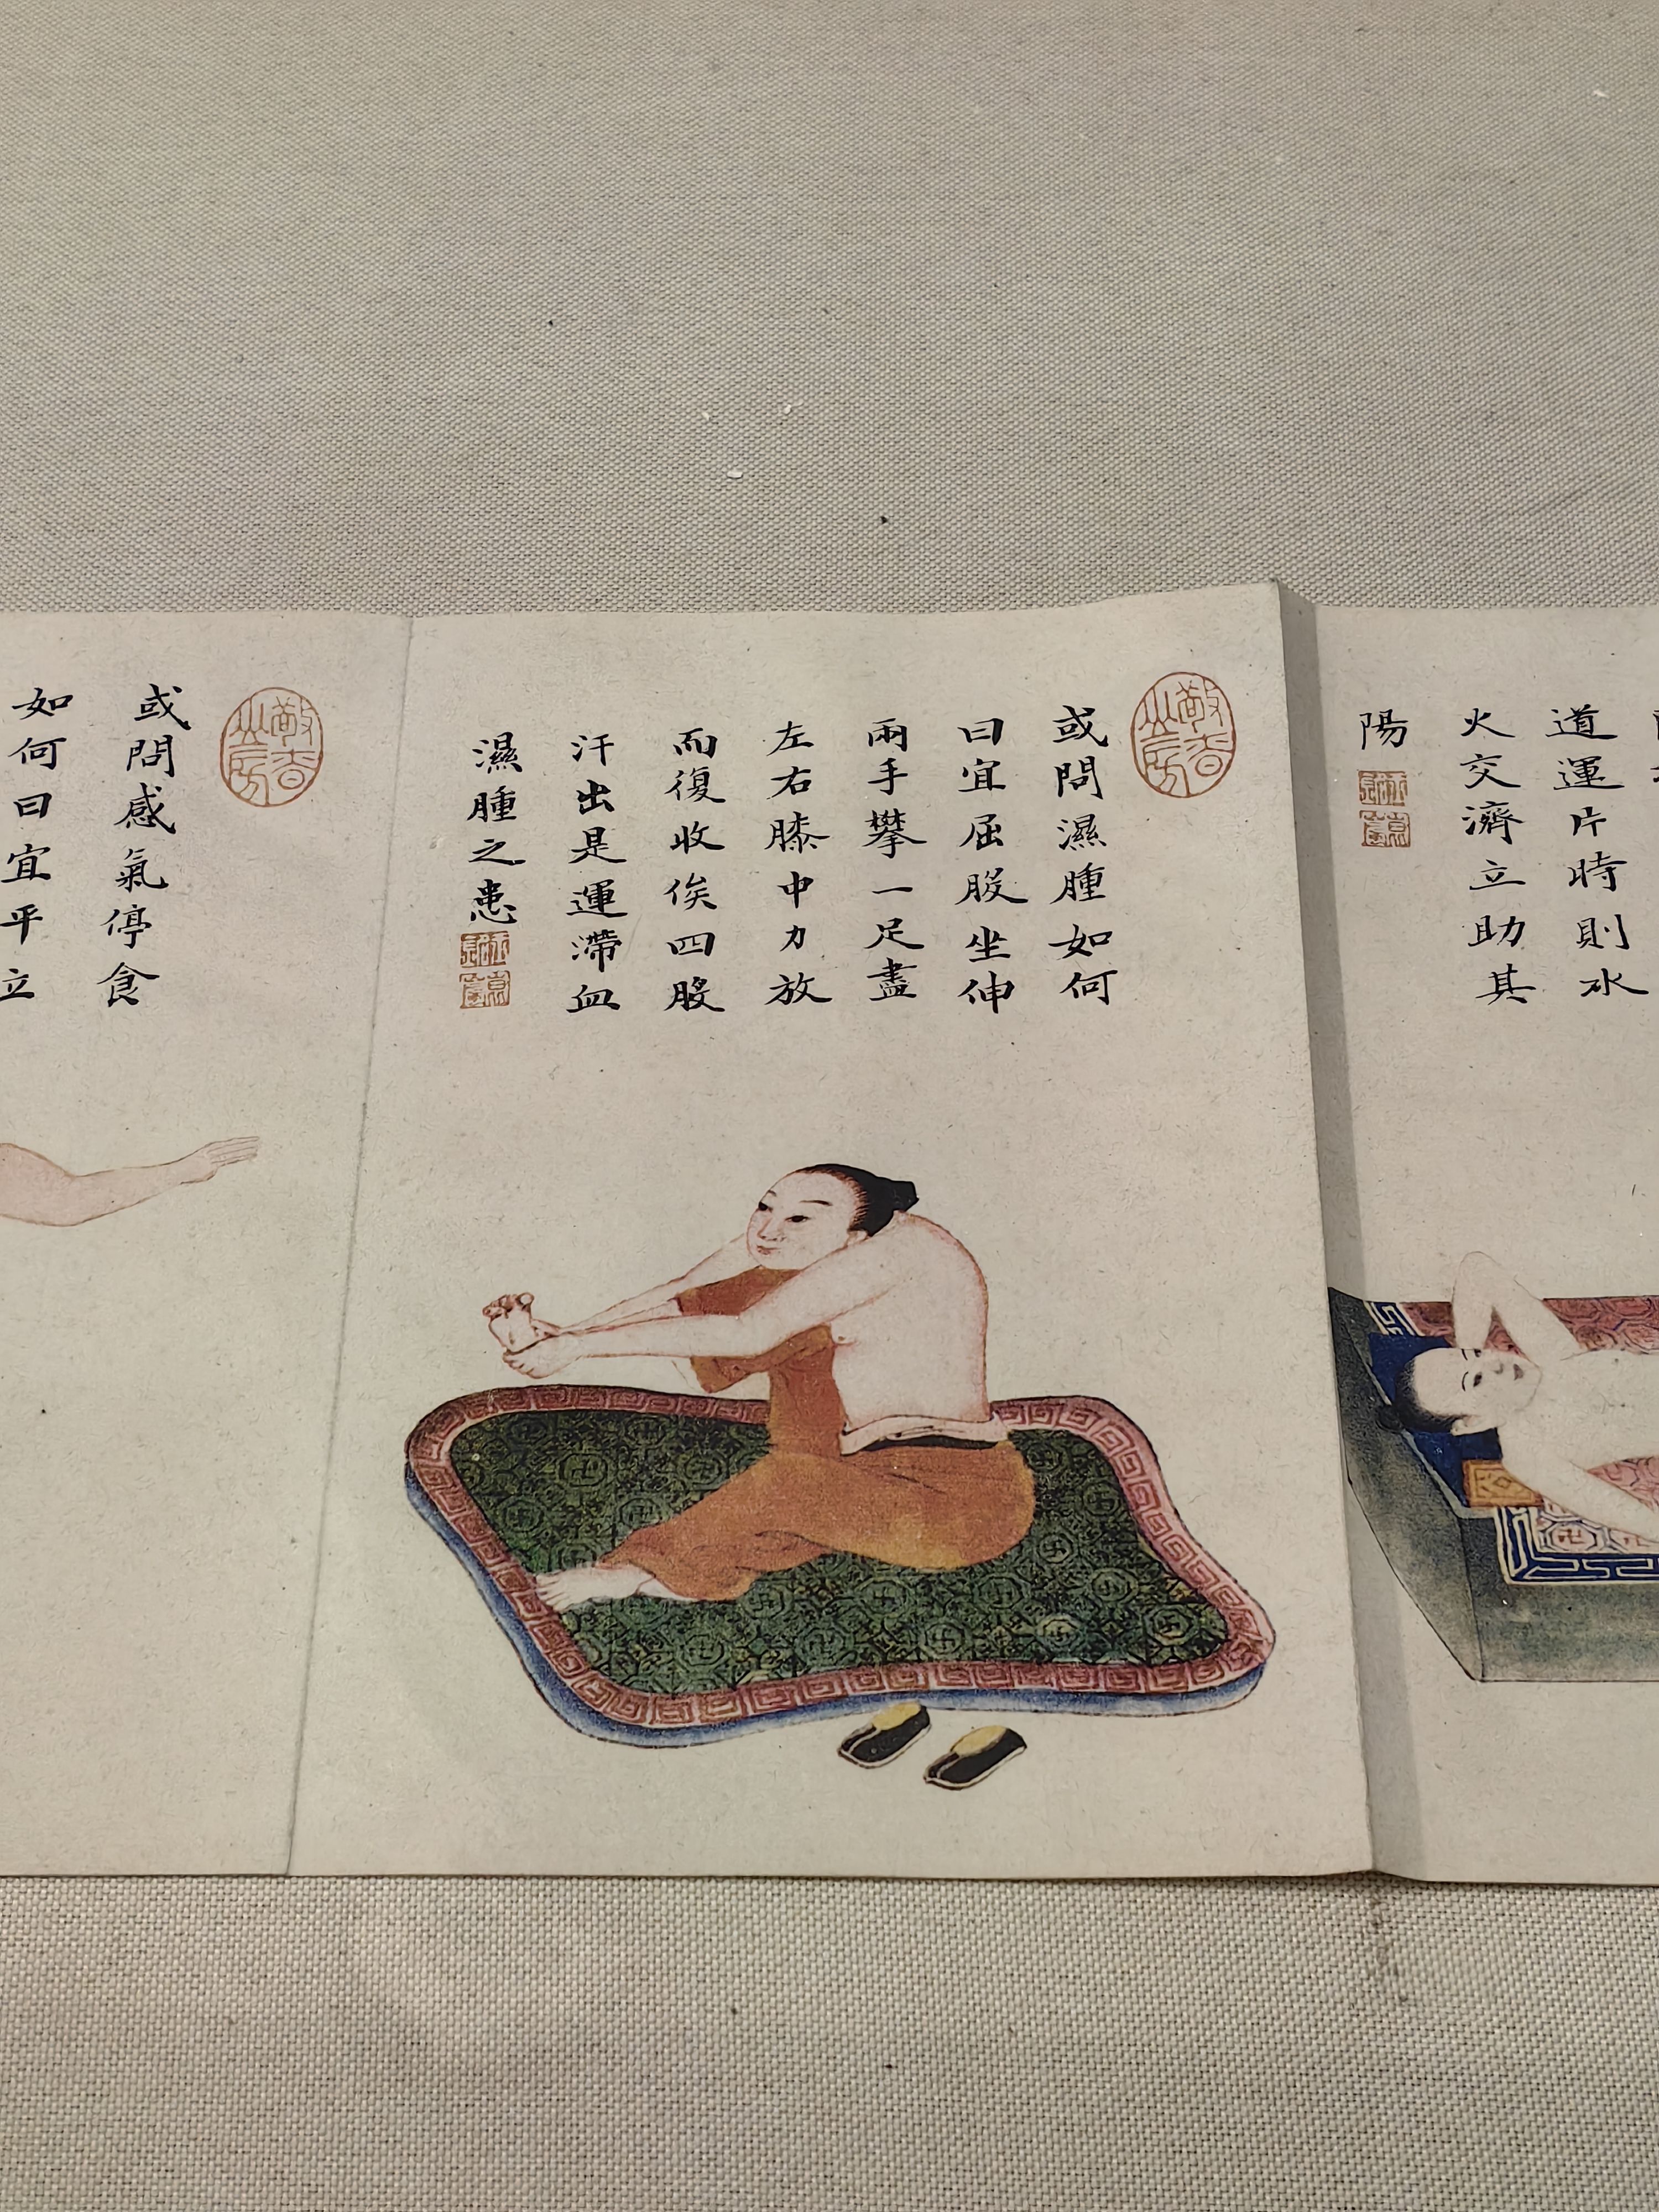 道運片時則水
火交濟立助其
陽
或問濕腫如何
曰宜屈股坐伸
兩手攀一足盡
左右膝中力放
而復收俟四股
汗出是運滯血
濕腫之患
或問感氣停食
如何曰宜平立